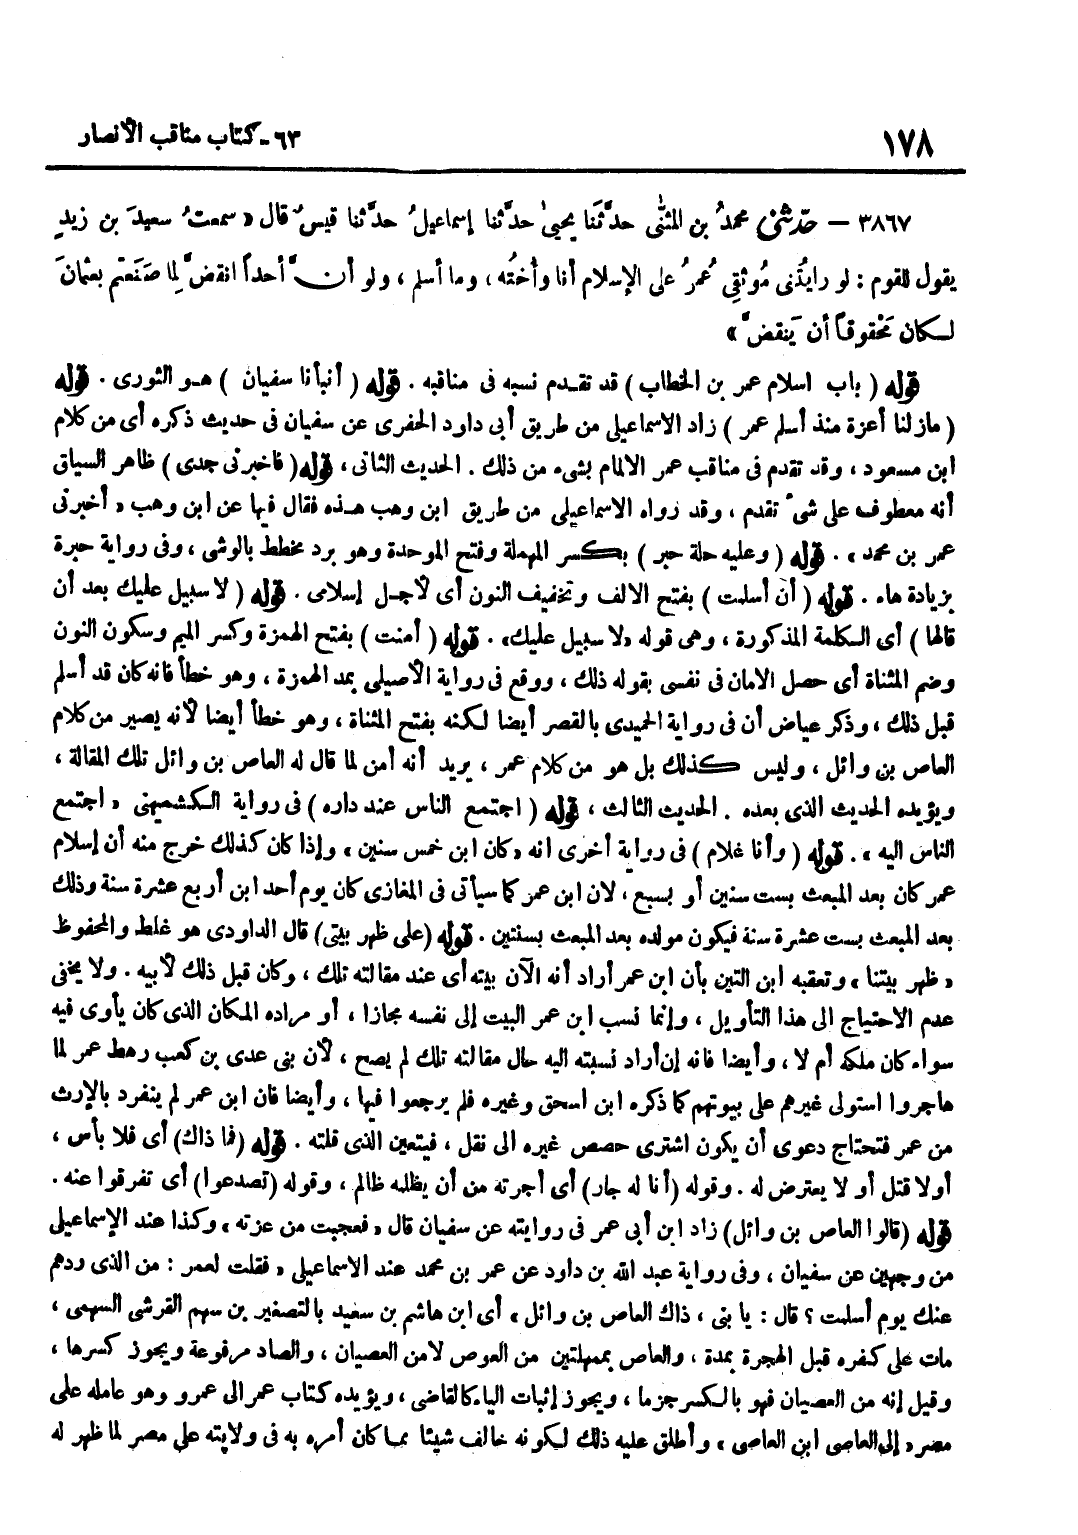 ١٧٨ ٦٣-كتاب مناقب الأنصار
٣٨٦٧ – حدّثنى محمدُ بن المثنَّى حدَّثَنا يحيىٰ حدَّثنا إسماعيلُ حدَّثنا قيسٌ قال « سمعتُ سعيدَ بن زيدٍ
يقول للقوم : لو رايتُنى مُوثقِى عُمرُ على الإسلام أنا وأختُه ، وما أسلم ، ولو أن أحداً انقضَّ لِما صَنَعتم بعثمانَ
لكان مَحْقوقاً أن يَنقضَّ »
قوله ( باب اسلام عمر بن الخطاب ) قد تقدم نسبه فى مناقبه . قوله ( أنبأنا سفيان ) هو الثورى . قوله
( مازلنا أعزة منذ أسلم عمر ) زاد الاسماعيلى من طريق أبى داود الحفرى عن سفيان فى حديث ذكره أى من كلام
ابن مسعود ، وقد تقدم فى مناقب عمر الالمام بشىء من ذلك . الحديث الثانى ، قوله ( فاخبرنى جدى ) ظاهر السياق
أنه معطوف على شىء تقدم ، وقد رواه الاسماعيلى من طريق ابن وهب هذه فقال فيها عن ابن وهب « أخبرنى
عمر بن محمد » . قوله ( وعليه حلة حبر ) بكسر المهملة وفتح الموحدة وهو برد مخطط بالوشى ، وفى رواية حبرة
بزيادة هاء . قوله ( أن أسلمت ) بفتح الالف وتخفيف النون أى لأجل إسلامى . قوله ( لا سبيل عليك بعد أن
قالها ) أى الكلمة المذكورة ، وهى قوله «لا سبيل عليك» . قوله ( أمنت ) بفتح الهمزة وكسر الميم وسكون النون
وضم المثناة أى حصل الامان فى نفسى بقوله ذلك ، ووقع فى رواية الأصيلى بمد الهمزة ، وهو خطأ فانه كان قد أسلم
قبل ذلك ، وذكر عياض أن فى رواية الحميدى بالقصر أيضا لكنه بفتح المثناة ، وهو خطأ أيضا لأنه يصير من كلام
العاص بن وائل ، وليس كذلك بل هو من كلام عمر ، يريد أنه أمن لما قال له العاص بن وائل تلك المقالة ،
ويؤيده الحديث الذى بعده . الحديث الثالث ، قوله ( اجتمع الناس عند داره ) فى رواية الكشميهنى « اجتمع
الناس اليه » . قوله ( وأنا غلام ) فى رواية أخرى انه «كان ابن خمس سنين» وإذا كان كذلك خرج منه أن إسلام
عمر كان بعد المبعث بست سنين أو بسبع ، لان ابن عمر كما سيأتى فى المغازى كان يوم أحد ابن أربع عشرة سنة وذلك
بعد المبعث بست عشرة سنة فيكون مولده بعد المبعث بسنتين . قوله (على ظهر بيتى) قال الداودى هو غلط والمحفوظ
« ظهر بيتنا » وتعقبه ابن التين بأن ابن عمر أراد أنه الآن بيته أى عند مقالته تلك ، وكان قبل ذلك لأبيه . ولا يخفى
عدم الاحتياج الى هذا التأويل ، وإنما نسب ابن عمر البيت إلى نفسه مجازا ، أو مراده المكان الذى كان يأوى فيه
سواء كان ملكه أم لا ، وأيضا فانه إن أراد نسبته اليه حال مقالته تلك لم يصح ، لأن بنى عدى بن كعب رهط عمر لما
هاجروا استولى غيرهم على بيوتهم كما ذكره ابن اسحق وغيره فلم يرجعوا فيها ، وأيضا فان ابن عمر لم ينفرد بالإرث
من عمر فتحتاج دعوى أن يكون اشترى حصص غيره الى نقل ، فيتعين الذى قلته . قوله (فما ذاك) أى فلا بأس ،
أولا قتل أو لا يعترض له . وقوله (أنا له جار) أى أجرته من أن يظلمه ظالم ، وقوله (تصدعوا) أى تفرقوا عنه .
قوله (قالوا العاص بن وائل) زاد ابن أبى عمر فى روايته عن سفيان قال « فعجبت من عزته » وكذا عند الإسماعيلى
من وجهين عن سفيان ، وفى رواية عبد الله بن داود عن عمر بن محمد عند الاسماعيلى « فقلت لعمر : من الذى ردهم
عنك يوم أسلمت ؟ قال : يا بنى ، ذاك العاص بن وائل » أى ابن هاشم بن سعيد بالتصغير بن سهم القرشى السهمى ،
مات على كفره قبل الهجرة بمدة ، والعاص بمهملتين من العوص لا من العصيان ، والصاد مرفوعة ويجوز كسرها ،
وقيل إنه من العصيان فهو بالكسر جزما ، ويجوز إثبات الياء كالقاضى ، ويؤيده كتاب عمر الى عمرو وهو عامله على
مصر « إلى العاصى ابن العاصى » ، وأطلق عليه ذلك لكونه خالف شيئا مما كان أمره به فى ولايته على مصر لما ظهر له